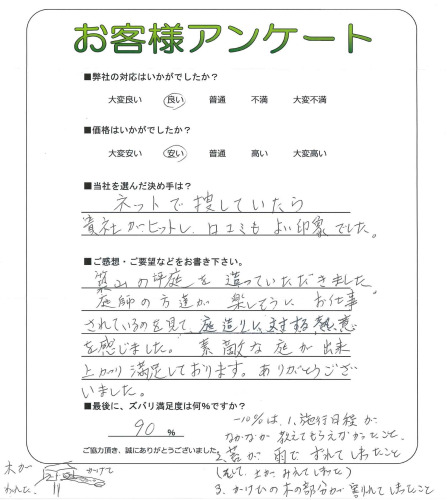 お客様アンケート
■弊社の対応はいかがでしたか?
大変良い 良い 普通 不満 大変不満
■価格はいかがでしたか?
大変安い 安い 普通 高い 大変高い
■当社を選んだ決め手は?
ネットで捜していたら
貴社がヒットし、口コミもよい印象でした。
■ご感想・ご要望などをお書き下さい。
築山の坪庭を造っていただきました
庭師の方達が楽しそうにお仕事
されているのを見て、庭造りに対する熱意
を感じました。素敵な庭が出来
上がり満足しております。ありがとうござい
いました。
■最後に、ズバリ満足度は何%ですか?
90 %
ご協力頂き、誠にありがとうございました
-10%は、1.施行日程が
なかなか教えてもらえなかったこと
2.苔が雨でずれてしまったこと
(そして、土がみえてしまった)
3.かけひの木の部分が割れてしまったこと
木が かけて
われた